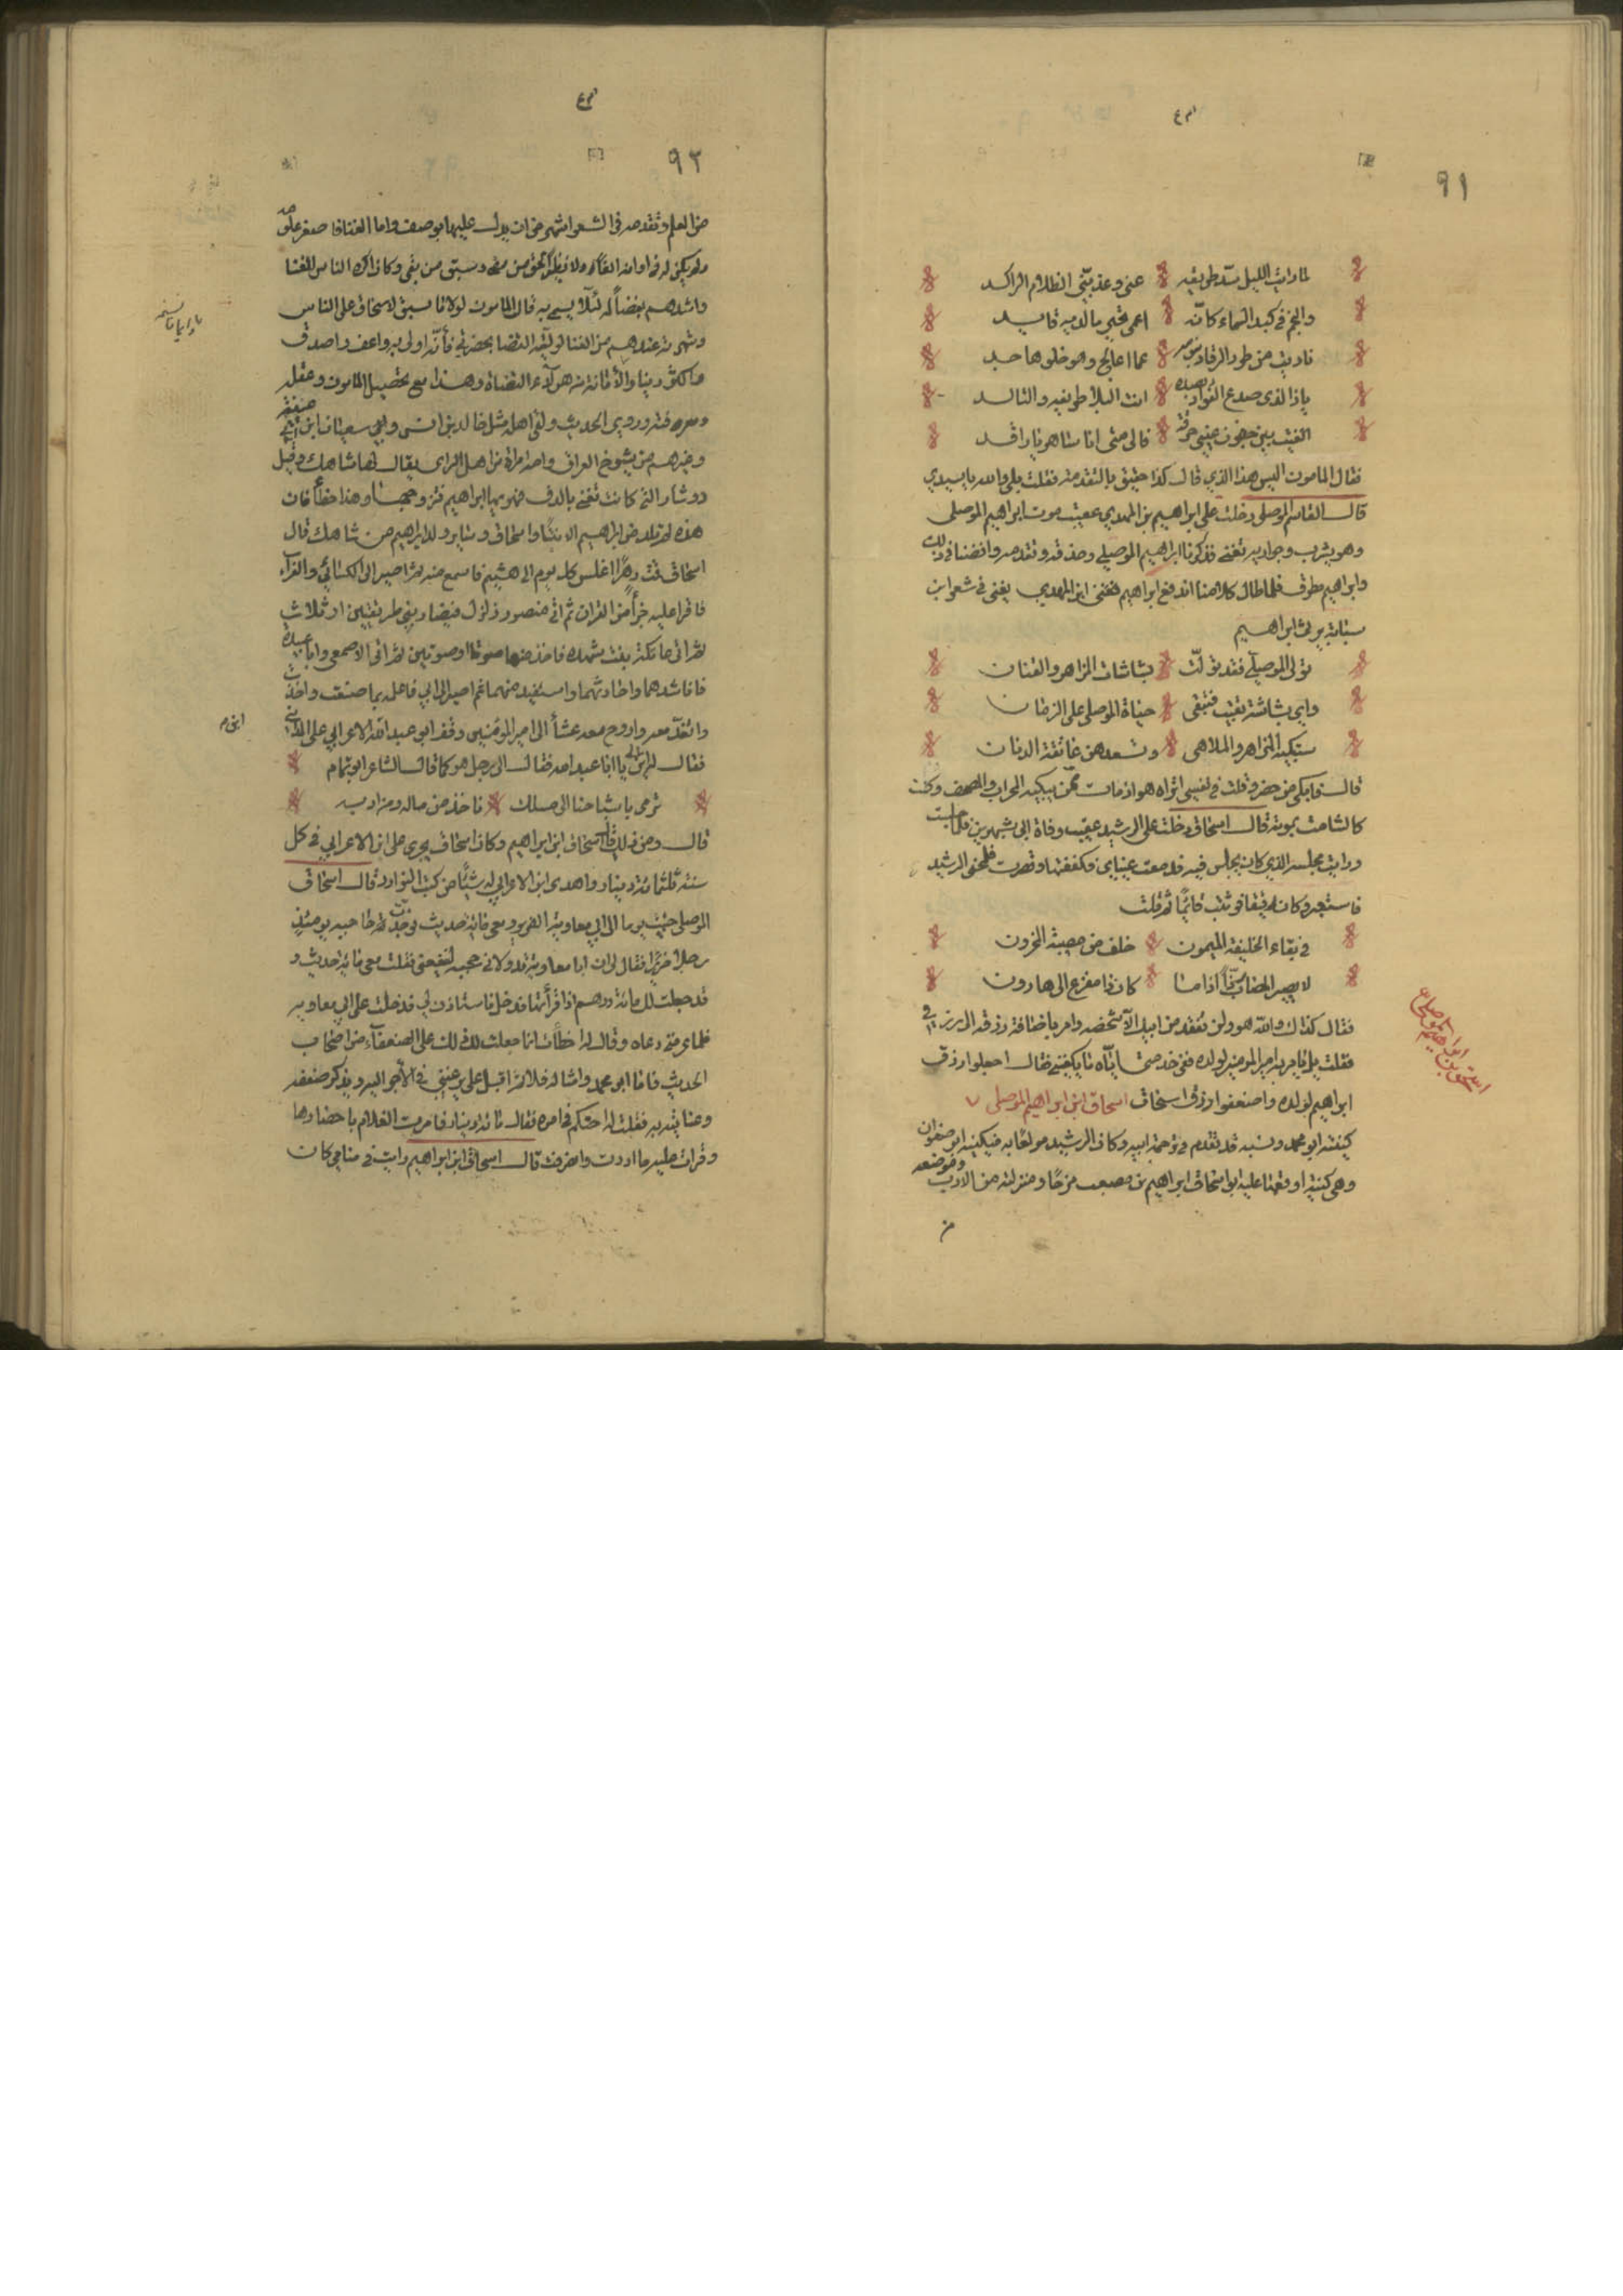 ٩١
لما رايت الليل سد طريقه عني وعذبني الظلام الراكد
والنجم في كبد السماء كانه اعمى تحير ما لديه قايد
ناديت من طرد الرقاد بنومه عما اعالج وهو خلو هاجد
ياذا الذي صدع الفواد بصده انت البلا طريفه والتالد
القيت بين جفون عيني حرقة فالى متى انا ساهر يا راقد
فقال المامون اليس هذا الذي قال كذا حقيق بالتقدمة فقلت بلى والله يا سيدي
قال القاسم الموصلي دخلت على ابراهيم بن المهدي عقيب موت ابراهيم الموصلي
وهو يشرب وجواريه تغني فذكرنا ابراهيم الموصلي وحذقه وتقدمه وافضنا في ذلك
وابراهيم مطرق فلما طال كلامنا اندفع ابراهيم فغنى ابن المهدي يغني في شعر ابن
سيابة يرثي ابراهيم
تولى الموصلي فقد تولت بشاشات المزاهر والقنان
واي بشاشة بقيت فتبقى حياة الموصلي على الزمان
ستبكيه المزاهر والملاهي وتسعدهن عاتقة الدنان
قال فابكى من حضر وقلت في نفسي اتراه هو اذ مات من يبكيه المحراب والمصحف وكنت
كالشامت بموته قال اسحاق دخلت على الرشيد عقيب وفاة ابي بشهرين فلما جلست
ورايت مجلسه الذي كان يجلس فيه فدمعت عيناي فكفكفتها وتصبرت فلمحني الرشيد
فاستعبر وكان رقيقا فوثبت قائما ثم قلت
في بقاء الخليفة الميمون خلف من مصيبة المحزون
لا يضير المصاب رزءا اذا ما كان ذا مفزع الى هارون
فقال كذاك والله هو ولن تفقد من ابيك الا شخصه وامر باضافة رزقه الى رزقي
فقلت بل يامر به امير المومنين لولده ففي خدمتي اياه ما يكفيني فقال اجعلوا رزق
ابراهيم لولده واضعفوا رزق اسحاق اسحاق ابن ابراهيم الموصلي
كنيته ابو محمد ونسبه قد تقدم في ترجمة ابيه وكان الرشيد مولعا به فيكنيه ابو صفوان
وهي كنية اوقعها عليه ابو اسحاق ابراهيم بن مصعب مزحا ومنزلته من الادب وموضعه
من
اسحق بن ابراهيم الموصلي
٩٢
من العلم وتقدمه في الشعر اشهر من ان يدل عليها بوصف واما الغنا فاصغر علومه
ولم يكن له في اوانه
واشدهم بغضا له لئلا يسمى به قال المامون لولا ما سبق لاسحاق على الناس
وشهرته عندهم من الغنا لوليته القضا بحضرتي فانه اولى به واعف واصدق
واكثر دينا والامانة من هولاء القضاة وهذا مع تحصيل المامون وعقله
ومعرفته وروى الحديث ولقي اهله مثل مالك بن انس وابي سفيان ابن عيينة
وغيرهم من شيوخ العراق وامه امراة من اهل الراى يقال لها شاهك وقيل
دوشار التي كانت تغني بالدف فهويها ابراهيم فتزوجها وهذا خطأ فان
هذه لم تلد من ابراهيم الا بنتا واسحاق وسائر ولد ابراهيم من شاهك قال
اسحاق بقيت دهرا اغلس كل يوم الى هشيم فاسمع منه ثم اصير الى الكسائي والفراء
فاقرا عليه جزأ من القران ثم اتي منصور زلزل فيضاربني طريقتين او ثلاث
ثم اتي عاتكة بنت شهده فاخذ منها صوتا او صوتين ثم اتي الاصمعي وابا عبيدة
فاناشدهما واحادثهما واستفيد منهما ثم اصير الى ابي فاعلمه بما صنعت واخذت
واتغدا معه واروح معه عشا الى امير المومنين وقف ابو عبد الله الاعرابي على المدائني
فقال له الى اين يا ابا عبد الله فقال الى رجل هو كما قال الشاعر ابو تمام
ترمي باشباحنا الى ملك ناخذ من ماله ومن ادبه
قال ومن ذلك قال اسحاق ابن ابراهيم وكان اسحاق يجري على ابن الاعرابي في كل
سنة ثلثمائة دينار واهدى ابن الاعرابي له شيئا من كتب النوادر قال اسحاق
الموصلي جئت يوما الى ابي معاوية الضرير ومعي مائة حديث فوجدت حاجبه يومئذ
رجلا ضريرا فقال لي ان ابا معاوية قد ولاني حجبه لينفعني فقلت معي مائة حديث و
قد جعلت لك مائة درهم اذا قرأتها فدخل فاستاذن لي فدخلت على ابي معاوية
فلما عرفني دعاه وقال له اخطأت انما جعلت لك ذلك على الضعفاء من اصحاب
الحديث فاما ابو محمد وامثاله فلا ثم اقبل علي يرغبني في الاجر اليه ويذكر ضعفه
وعنايته به فقلت له احتكم في امره فقال مائة دينار فامرت الغلام باحضارها
وقرات عليه ما اردت وانصرفت قال اسحاق ابن ابراهيم رايت في منامي كان